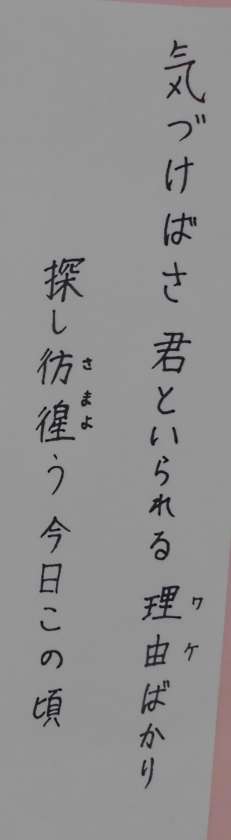 気づけばさ 君といられる 理由ばかり
ワケ
探し彷徨う 今日この頃
さまよ